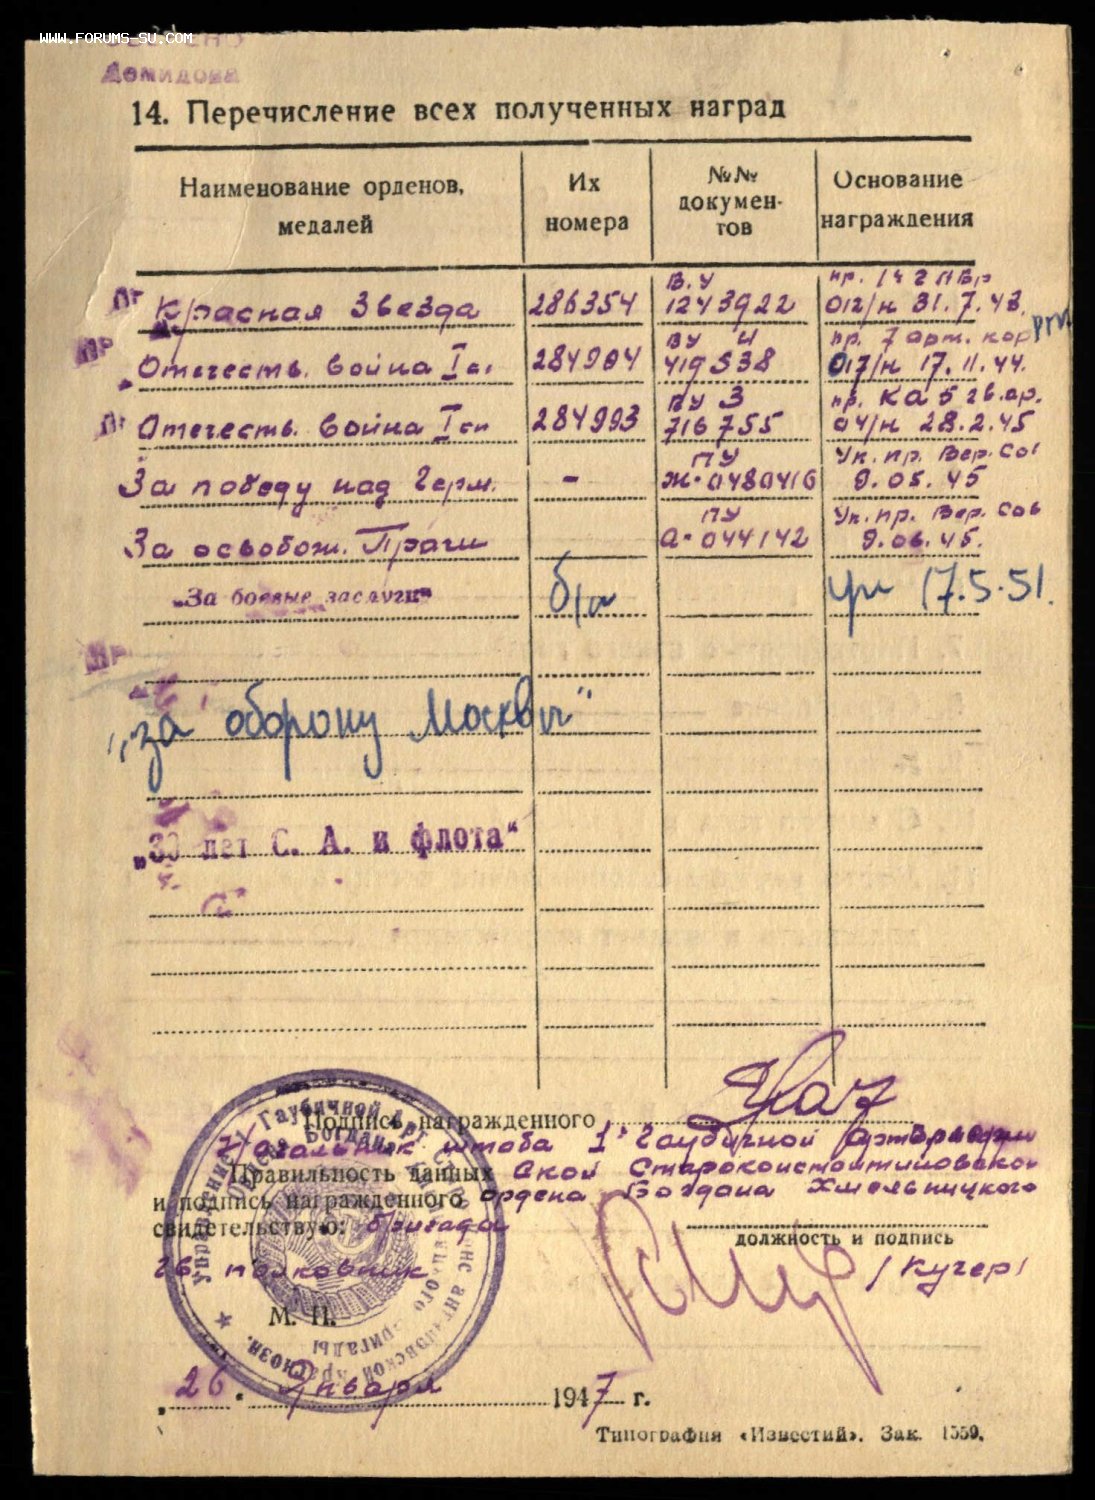 WWW.FORUMS-SU.COM
Демидова
14. Перечисление всех полученных наград
Наименование орденов, медалей
Их номера
№№ документов
Основание награждения
Красная Звезда 286354 В.У 1243922 пр. 012/н 31.7.43.
Отечеств. война I ст 284904 ВУ И 419538 пр. 7 арт. кор 017/н 17.11.44.
Отечеств. война I ст 284993 ПУ З 716755 пр. КА 5 гв. ар. 04/н 28.2.45
За победу над Герм. - ПУ Ж-0480416 Ук. пр. Вер. Сов 9.05.45
За освобож. Праги ПУ А-044142 Ук. пр. Вер. Сов 9.06.45.
"За боевые заслуги" б/н ук 17.5.51.
„за оборону Москвы"
„30 лет С. А. и флота“
Подпись награжденного
Начальник штаба 1 Гаубичной
Правильность данных
ской Староконстантиновской
и подпись награжденного ордена Богдана Хмельницкого
свидетельствую: бригады
должность и подпись
гв. полковник / Кучер /
М. П.
26. Января 1947 г.
Типография «Известий». Зак. 1559.